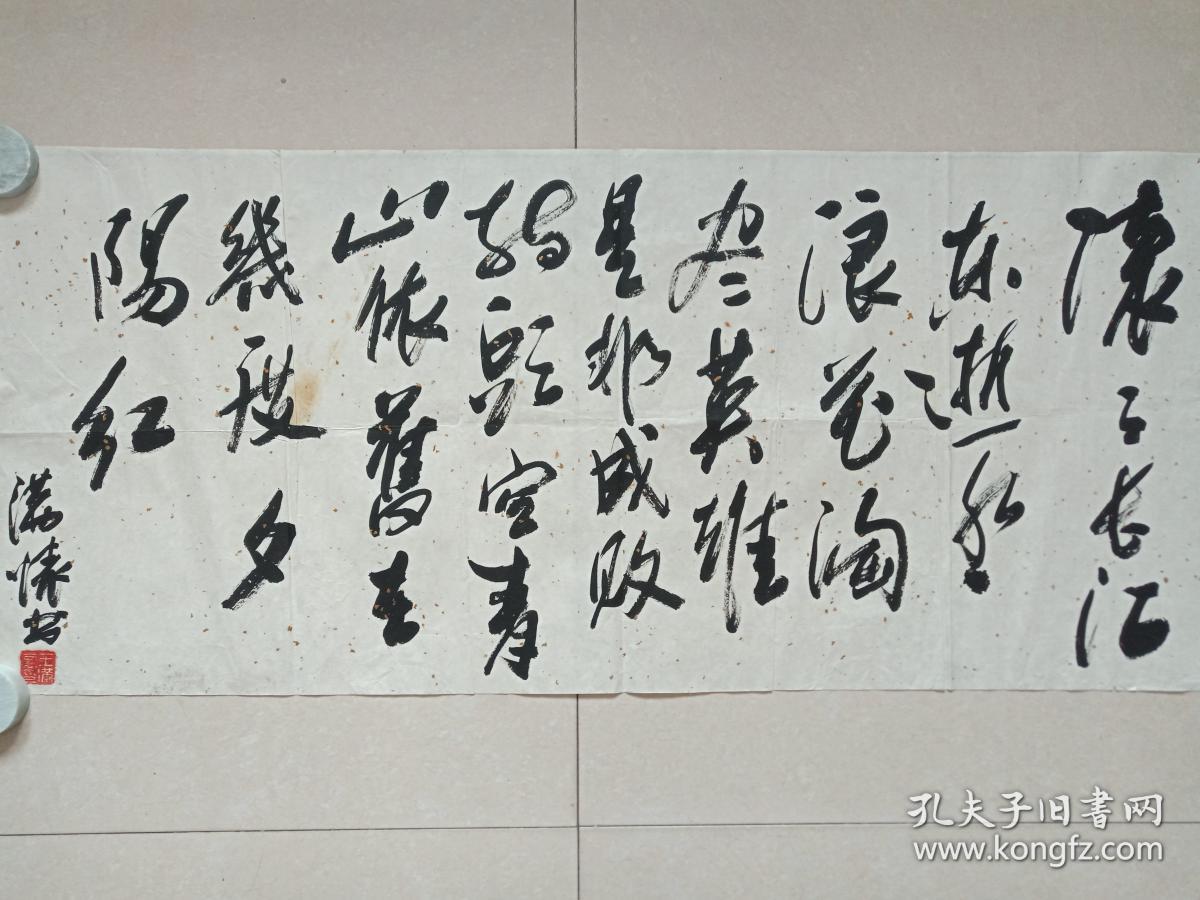 滚〻长江
东逝水
浪花淘
尽英雄
是非成败
转头空青
山依舊在
幾度夕
陽红
满怀书
孔夫子旧書网
www.kongfz.com